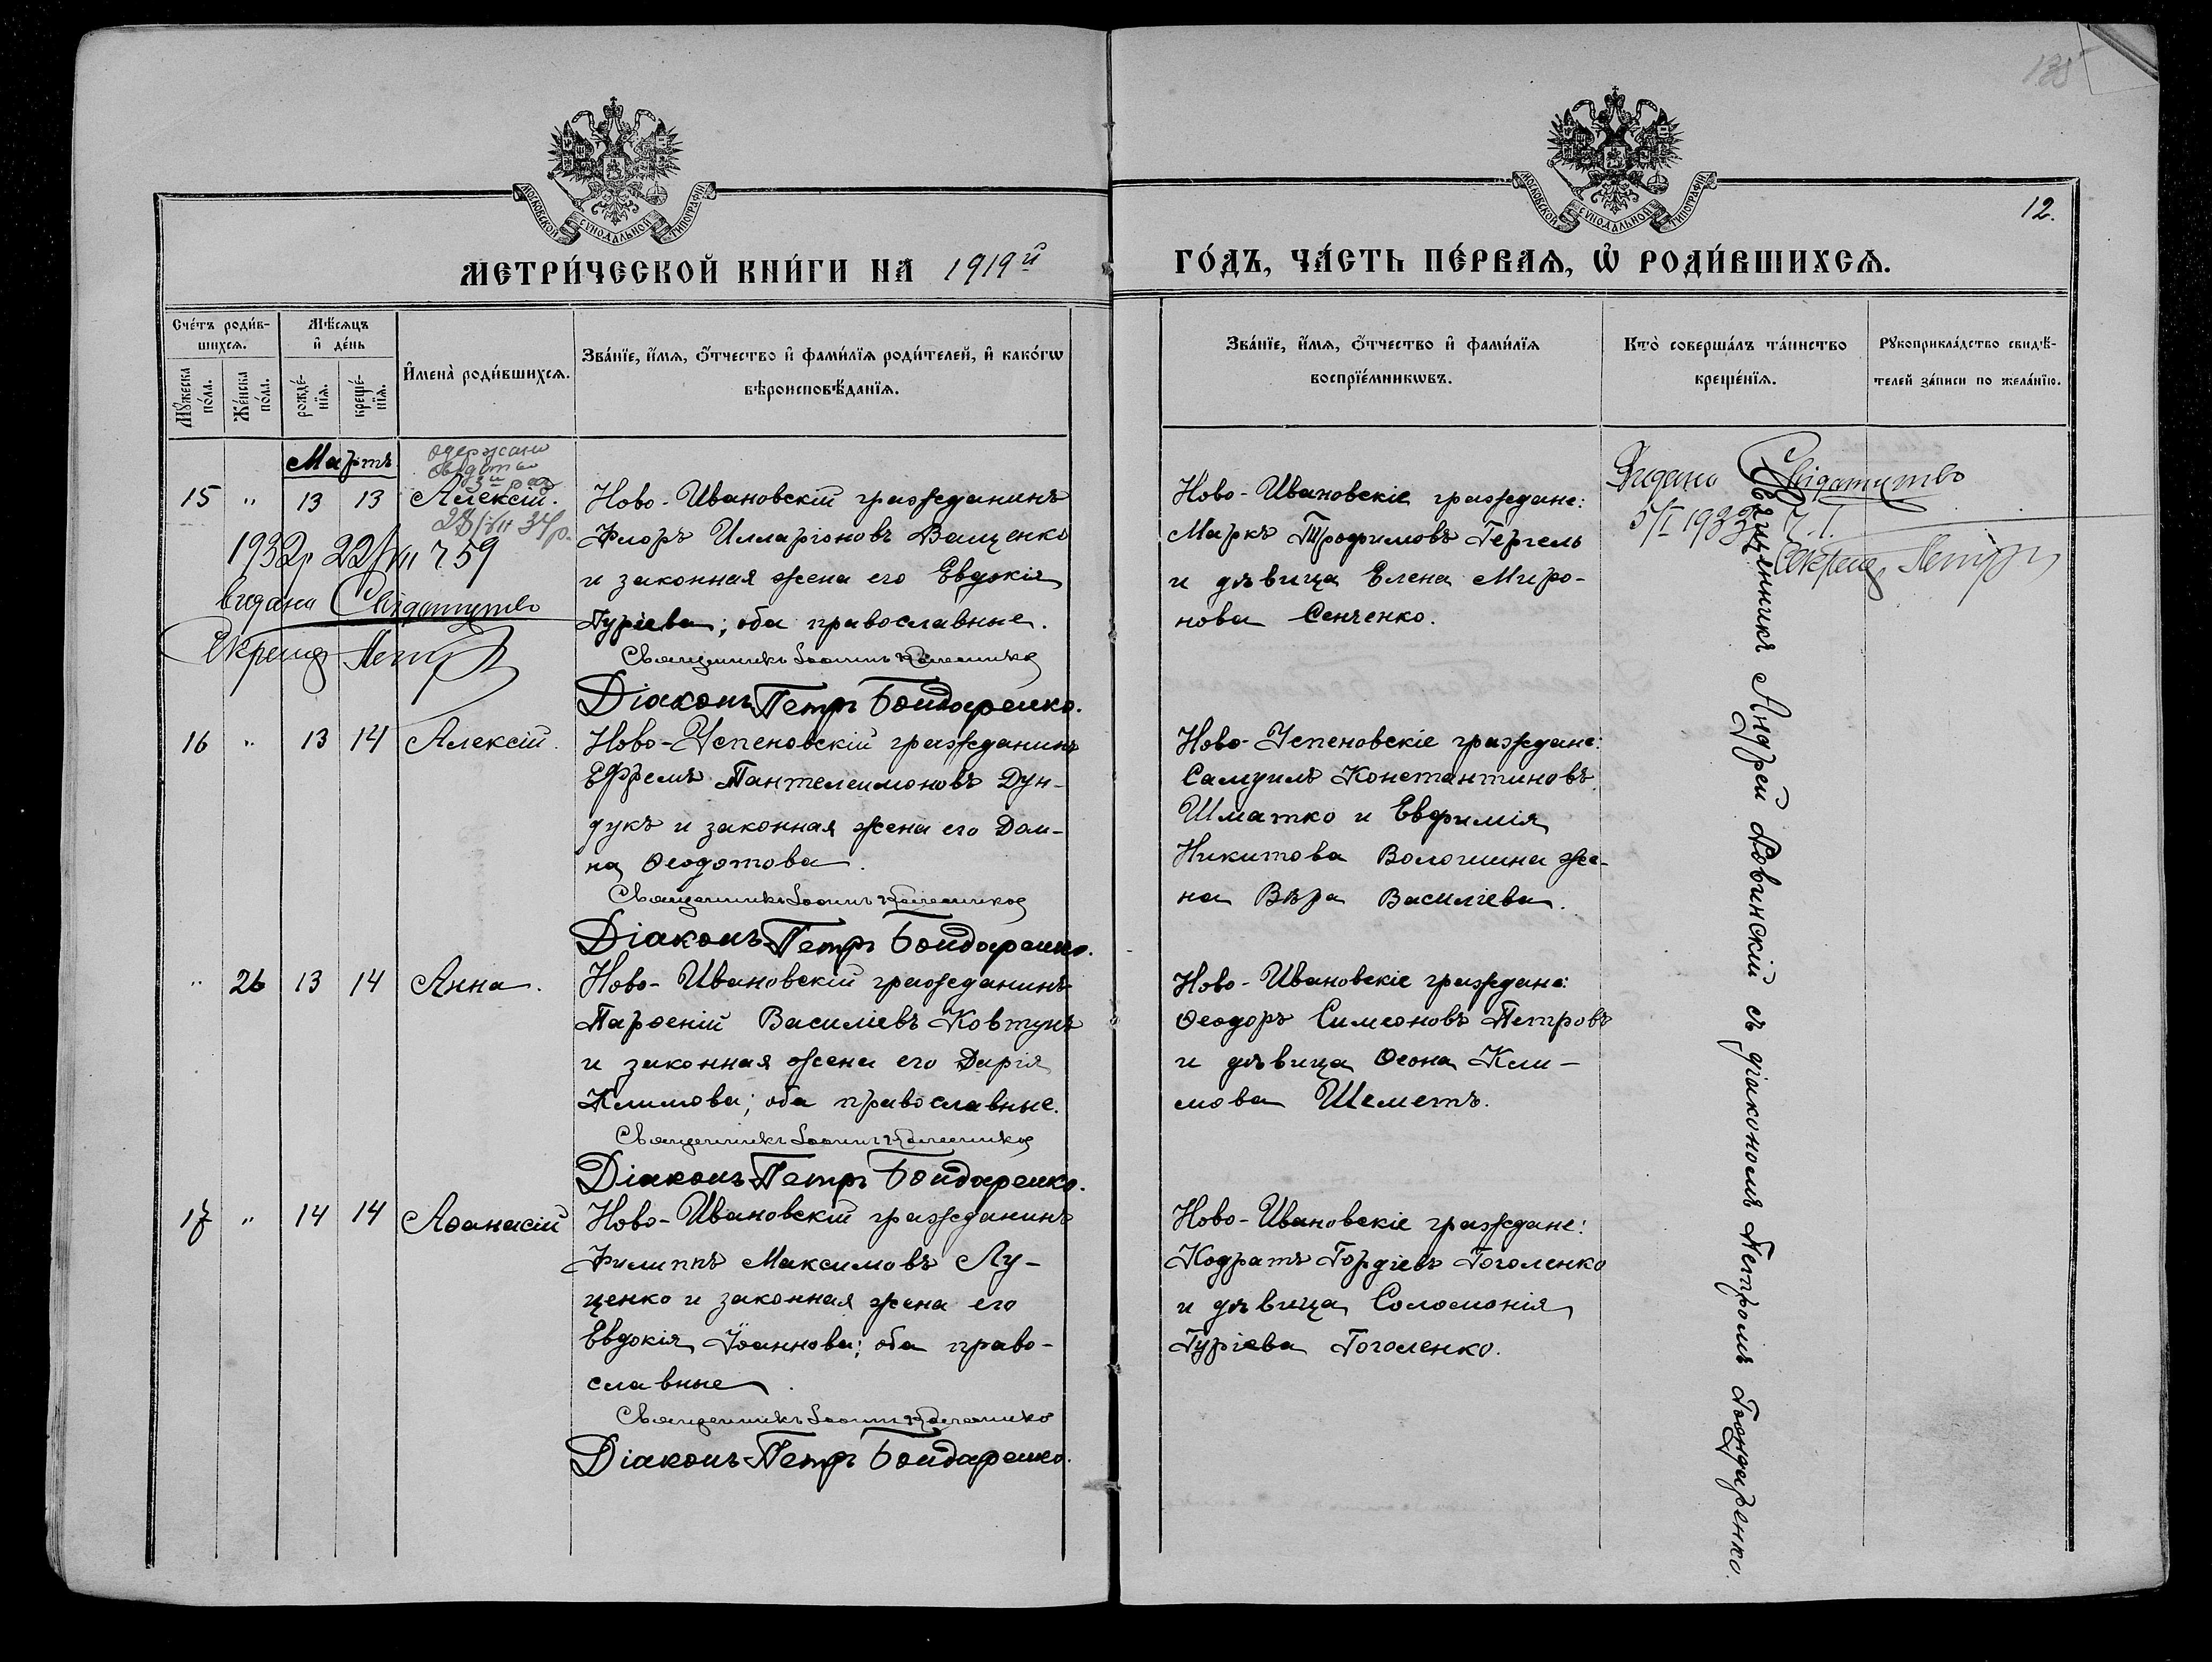 135
МОСКОВСКОЙ СУНОДАЛЬНОЙ ТИПОГРАФІИ
МОСКОВСКОЙ СУНОДАЛЬНОЙ ТИПОГРАФІИ
12.
МЕТРИ́ЧЕСКОЙ КНИ́ГИ НА 1919й
ГО́ДЪ, ЧА́СТЬ ПЕ́РВАѦ, Ѡ҆ РОДИ́ВШИХСѦ.
Сче́тъ роди́в-
шихсѧ.
Мꙋ́жеска по́ла.
Же́нска по́ла.
Мѣ́сѧцъ
и҆ де́нь
рожде́-
нїѧ.
креще́-
нїѧ.
И҆мена̀ роди́вшихсѧ.
Зва́нїе, и҆́мѧ, ѻ҆́тчество и҆ фами́лїѧ роди́телей, и҆ како́гѡ
вѣроисповѣ́данїѧ.
Зва́нїе, и҆́мѧ, ѻ҆́тчество и҆ фами́лїѧ
воспрїе́мникѡвъ.
Кто̀ соверша́лъ та́инство
креще́нїѧ.
Рꙋкоприкла́дство свидѣ́-
телей за́писи по жела́нїю.
Мартъ
одержано
15 " 13 13 Алексій.
34р.
1932р 22/VII 759
видано Свідоцтво
Секрет
Ново-Ивановскій гражданинъ
Флоръ Илларіоновъ Ващенко
и законная жена его Евдокія
Гуріева; оба православные.
Священникъ Іоаннъ
Діаконъ Петръ Бондаренко.
Ново-Ивановскіе граждане:
Маркъ Трофимовъ Гергель
и дѣвица Елена Миро-
нова Сенченко.
Видано Свідоцтво
5/I 1933 р.
Секрет
Священникъ Андрей Ловинскій съ діакономъ Петромъ Бондаренко.
16 " 13 14 Алексій.
Ново-Успеновскій гражданинъ
Ефремъ Пантелеимоновъ Дун-
дукъ и законная жена его Дом-
на Ѳеодотова.
Священникъ Іоаннъ
Діаконъ Петръ Бондаренко.
Ново-Успеновскіе граждане:
Самуилъ Константиновъ
Шматко и Евфимія
Никитова Волошина же-
на Вѣра Василіева.
" 26 13 14 Анна.
Ново-Ивановскій гражданинъ
Парѳеній Василіевъ Ковтунъ
и законная жена его Дарія
Климова; оба православные.
Священникъ Іоаннъ
Діаконъ Петръ Бондаренко.
Ново-Ивановскіе граждане:
Ѳеодоръ Симеоновъ Петровъ
и дѣвица Ѳеона Кли-
мова Шеметъ.
17 " 14 14 Аѳанасій
Ново-Ивановскій гражданинъ
Филиппъ Максимовъ Лу-
ценко и законная жена его
Евдокія Іоаннова; оба право-
славные.
Священникъ Іоаннъ
Діаконъ Петръ Бондаренко.
Ново-Ивановскіе граждане:
Кодратъ Гордіевъ Гоголенко
и дѣвица Соломонія
Гуріева Гоголенко.